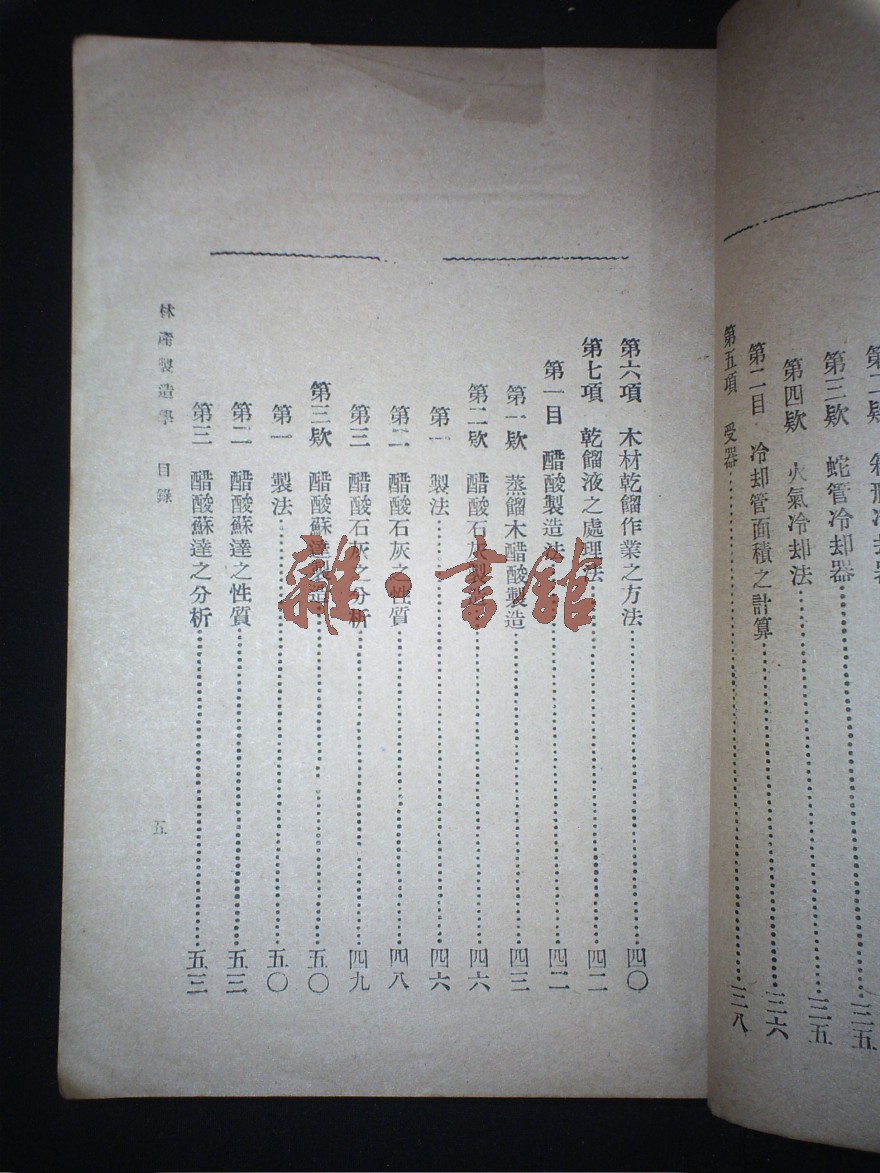 第三欵 蛇管冷却器 三五
第四欵 火氣冷却法 三五
第二目 冷却管面積之計算 三六
第五項 受器 三八
第六項 木材乾餾作業之方法 四〇
第七項 乾餾液之處理法 四二
第一目 醋酸製造法 四二
第一欵 蒸餾木醋酸製造 四三
第二欵 醋酸石灰製造 四六
第一 製法 四六
第二 醋酸石灰之性質 四八
第三 醋酸石灰之分析 四九
第三欵 醋酸蘇達製造 五〇
第一 製法 五〇
第二 醋酸蘇達之性質 五三
第三 醋酸蘇達之分析 五三
林產製造學 目錄 五
雜·書館